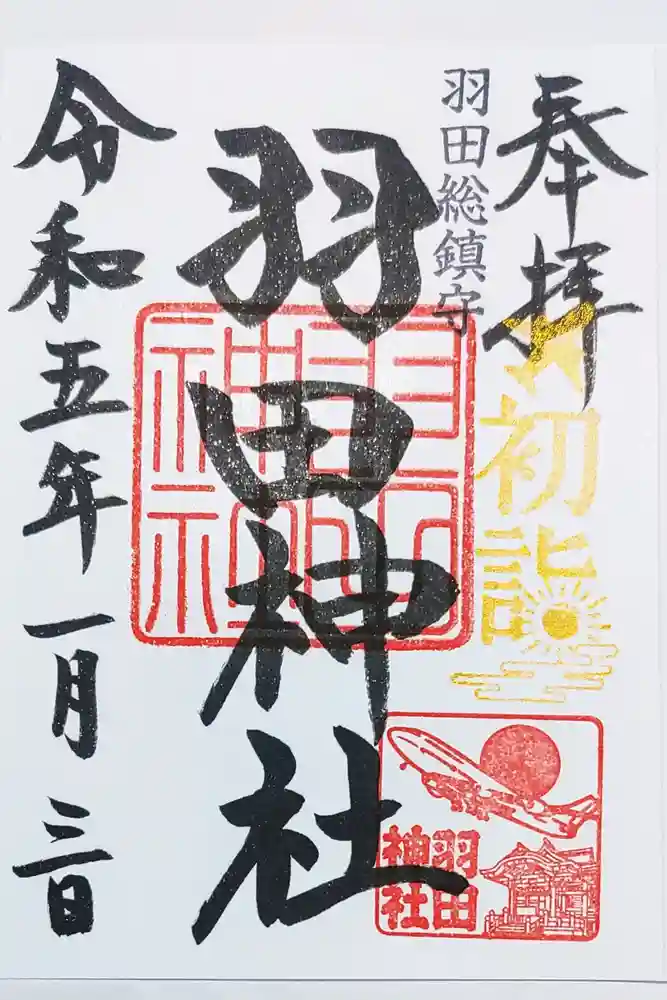 奉拝
初詣
羽田総鎮守
羽田神社
羽田
神社
令和五年一月三日